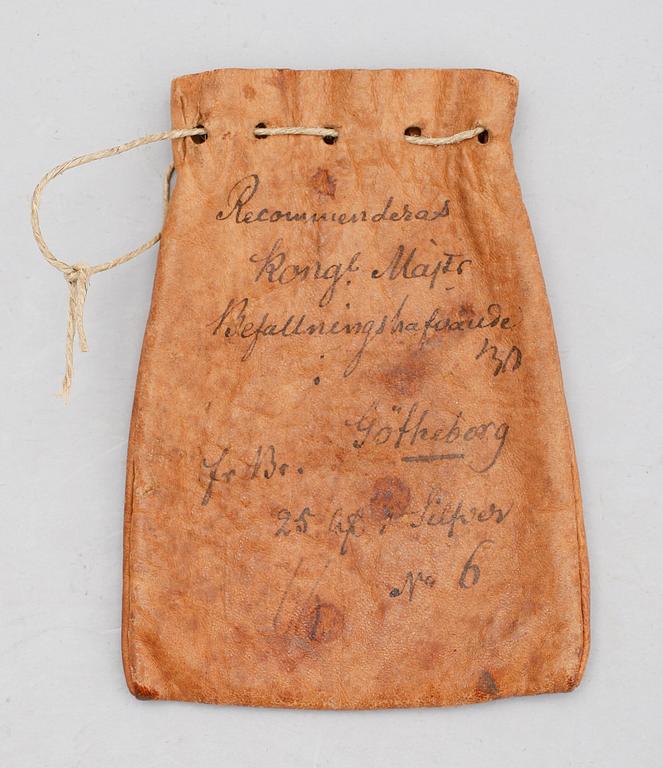 Recommenderas
Kongl. Majts
Befallningshafvande
i
Götheborg
fr Br.
25 i Silfver
No 6